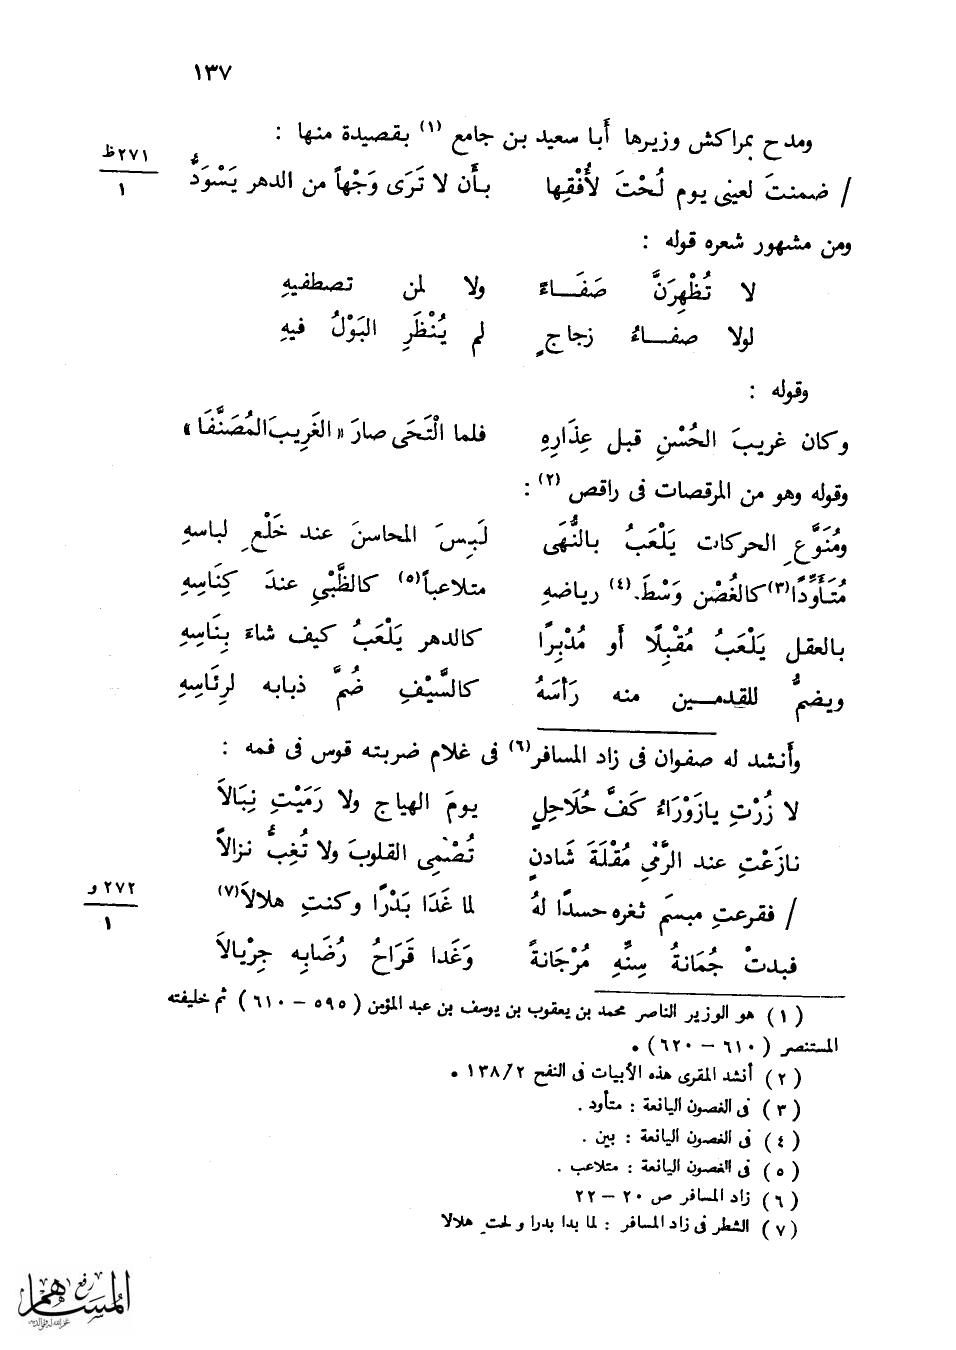 ١٣٧
ومدح بمراكش وزيرها أَبا سعيد بن جامع (١) بقصيدة منها :
٢٧١ظ
١
/ ضمنتَ لعينى يوم لُحْتَ لأُفْقِها بأَن لا تَرَى وَجْهاً من الدهر يَسْوَدُّ
ومن مشهور شعره قوله :
لا تُظْهِرَنَّ صَفَاءً ولا لمن تصطفيهِ
لولا صفاءُ زجاجٍ لم يُنْظَرِ البَوْلُ فيهِ
وقوله :
وكان غريبَ الحُسْنِ قبل عِذَارِهِ فلما الْتَحَى صارَ «الغَرِيبَ المُصَنَّفَا»
وقوله وهو من المرقصات فى راقص (٢) :
ومُنَوَّعِ الحركات يَلْعَبُ بالنُّهَى لَبِسَ المحاسنَ عند خَلْعِ لباسهِ
مُتَأَوِّدًا(٣) كالغُصْن وَسْطَ (٤) رياضهِ متلاعباً(٥) كالظَّبْيِ عندَ كِنَاسِهِ
بالعقل يَلْعَبُ مُقْبِلًا أَو مُدْبِرًا كالدهر يَلْعَبُ كيف شاءَ بِنَاسِهِ
ويضمُّ للقدمين منه رَأسَهُ كالسَّيْفِ ضُمَّ ذبابه لرِئَاسِهِ
وأَنشد له صفوان فى زاد المسافر(٦) فى غلام ضربته قوس فى فمه :
لا زُرْتِ يازَوْرَاءُ كَفَّ حُلَاحِلٍ يومَ الهياج ولا رَمَيْتِ نِبَالَا
نازَعْتِ عند الرَّمْيِ مُقْلَةَ شَادنٍ تُصْمِى القلوبَ ولا تُغِبُّ نزالاً
٢٧٢ و
١
/ فقرعتِ مبسمَ ثغره حسدًا لهُ لما غَدَا بَدْرًا وكنتِ هلالاَ(٧)
فبدتْ جُمَانةُ سِنِّهِ مُرْجَانةً وَغَدا قَرَاحُ رُضَابِه جِرْيالاَ
(١) هو الوزير الناصر محمد بن يعقوب بن يوسف بن عبد المؤمن (٥٩٥ – ٦١٠) ثم خليفته
المستنصر (٦١٠ – ٦٢٠) .
(٢) أنشد المقرى هذه الأبيات فى النفح ١٣٨/٢ .
(٣) فى الغصون اليانعة : متأود .
(٤) فى الغصون اليانعة : بين .
(٥) فى الغصون اليانعة : متلاعب .
(٦) زاد المسافر ص ٢٠ – ٢٢
(٧) الشطر فى زاد المسافر : لما بدا بدرا ولحت هلالا
رفع
المساهم